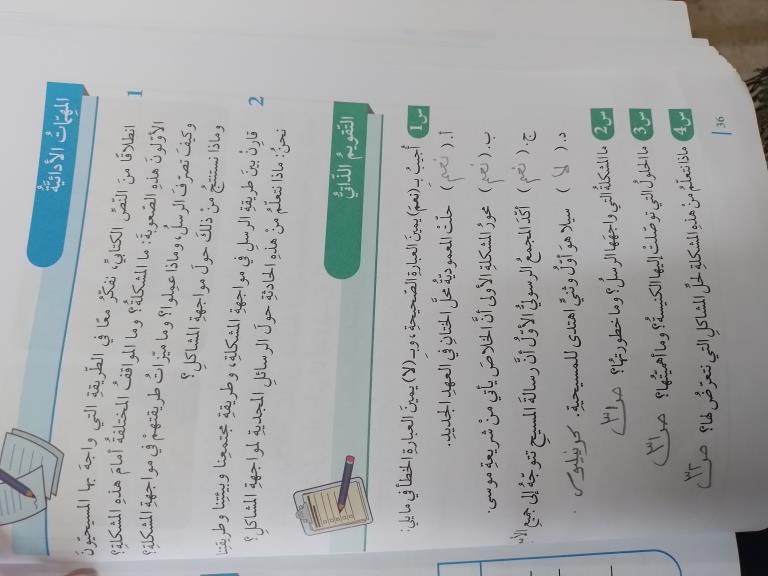 المهمّاتُ الأدائيّةُ
1 انطلاقًا منَ النّصِّ الكتابيِّ، نفكّرُ معًا في الطّريقةِ التي واجهَ بها المسيحيّونَ
الأوّلونَ هذهِ الصّعوبةَ: ما المشكلةُ؟ وما المواقفُ المختلفةُ أمامَ هذهِ المشكلةِ؟
وكيفَ تصرّفَ الرسلُ، وماذا عملوا؟ وما ميّزاتُ طريقتهمْ في مواجهةِ المشكلةِ؟
وماذا نستنتجُ منْ ذلكَ حولَ مواجهةِ المشاكلِ؟
2 قارنْ بينَ طريقةِ الرسلِ في مواجهةِ المشكلةِ، وطريقةِ مجتمعِنا وبيئتِنا وطريقتِنا
نحنُ: ماذا نتعلّمُ منْ هذهِ الحادثةِ حولَ الرسائلِ المجديةِ لمواجهةِ المشاكلِ؟
التقويمُ الذّاتيُّ
س1 أُجيبُ بـِ (نعمْ) يمينَ العبارةِ الصّحيحةِ، وبـِ (لا) يمينَ العبارةِ الخطأِ في ما يلي:
أ. ( نعم ) حلّتْ المعموديّةُ محلَّ الختانِ في العهدِ الجديدِ.
ب. ( نعم ) محورُ المشكلةِ الأولى أنَّ الخلاصَ يأتي منْ شريعةِ موسى.
ج. ( نعم ) أكّدَ المجمعُ الرسوليُّ الأوّلُ أنَّ رسالةَ المسيحِ تتوجّهُ إلى جميعِ
د. ( لا ) سيلا هوَ أوّلُ وثنيٍّ اهتدى للمسيحيةِ. كرنيليوس
س2 ما المشكلةُ التي واجهَها الرسلُ؟ وما خطورتُها؟ ص٣١
س3 ما الحلولُ التي توصّلتْ إليها الكنيسةُ؟ وما أهميّتُها؟ ص٣١
س4 ماذا نتعلّمُ منْ هذهِ المشكلةِ لحلِّ المشاكلِ التي نتعرّضُ لها؟ ص٣٢
36